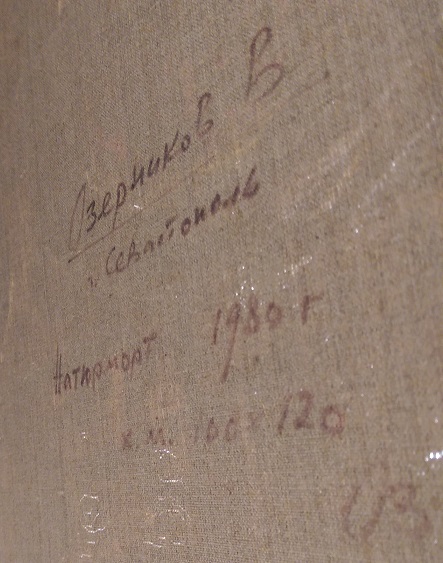 Озерников В
г. Севастополь
Натюрморт 1980 г
х.м. 100 120